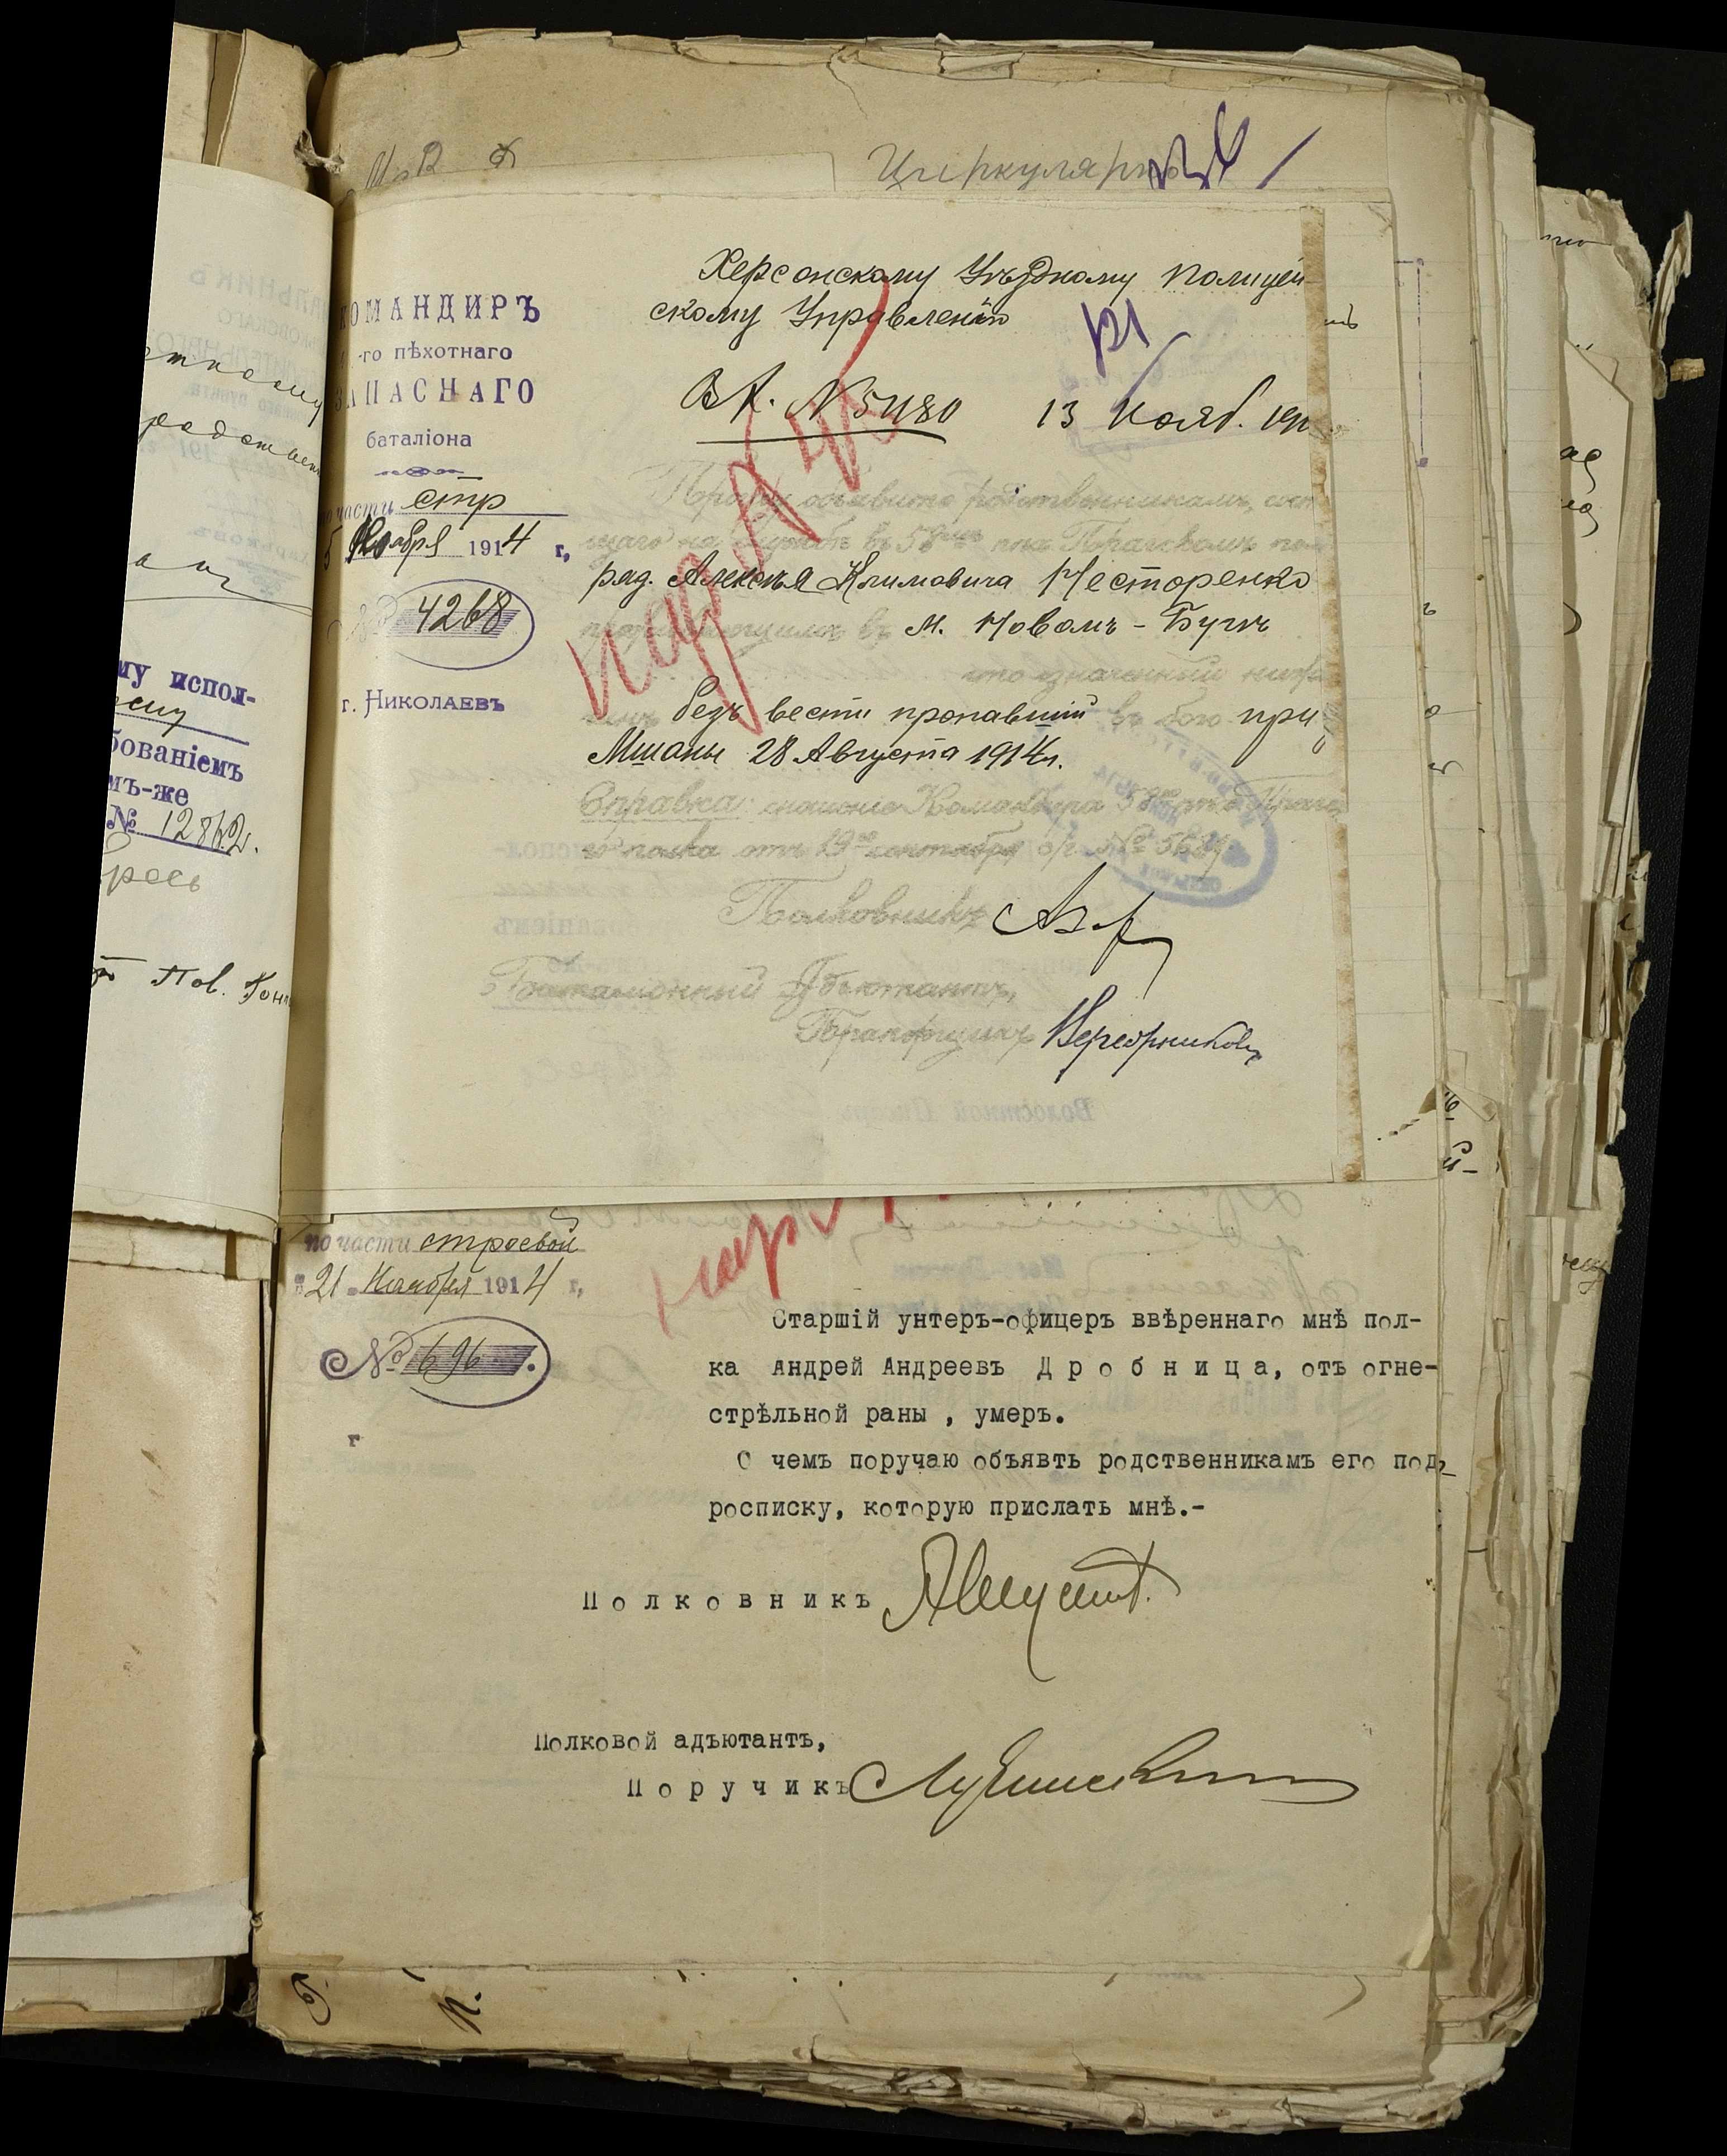 Циркулярно
КОМАНДИРЪ
-го пѣхотнаго
ЗАПАСНАГО
баталіона
по части стр
5 Ноября 1914 г.
№ 4268
г. Николаевъ
Херсонскому Уѣздному Полицей-
скому Управленію
Вх. № 5480 13 Нояб. 191
Прошу объявить родственникамъ, сост
щаго на службѣ въ 58мъ пѣх. Прагскомъ по
ряд. Алексѣя Климовича Несторенко
проживающимъ въ м. Новомъ-Бугѣ
что означенный нижн
чинъ безъ вести пропавшій въ бою при
Мшаны 28 Августа 1914 г.
Справка: сношеніе Командира 58го пѣх. Праг
го полка отъ 19го сентября с/г. № 5689
Полковникъ
Баталіонный Адъютантъ,
Прапорщикъ
по части строевой
21 Ноября 1914 г.
№ 696
г
Старшій унтеръ-офицеръ ввѣреннаго мнѣ пол-
ка Андрей Андреевъ Дробница, отъ огне-
стрѣльной раны , умеръ.
О чемъ поручаю объявть родственникамъ его подъ
росписку, которую прислать мнѣ.-
Полковникъ
Полковой адъютантъ,
Поручикъ
му испол-
бованіемъ
мъ-же
№ 12862.
Пов.